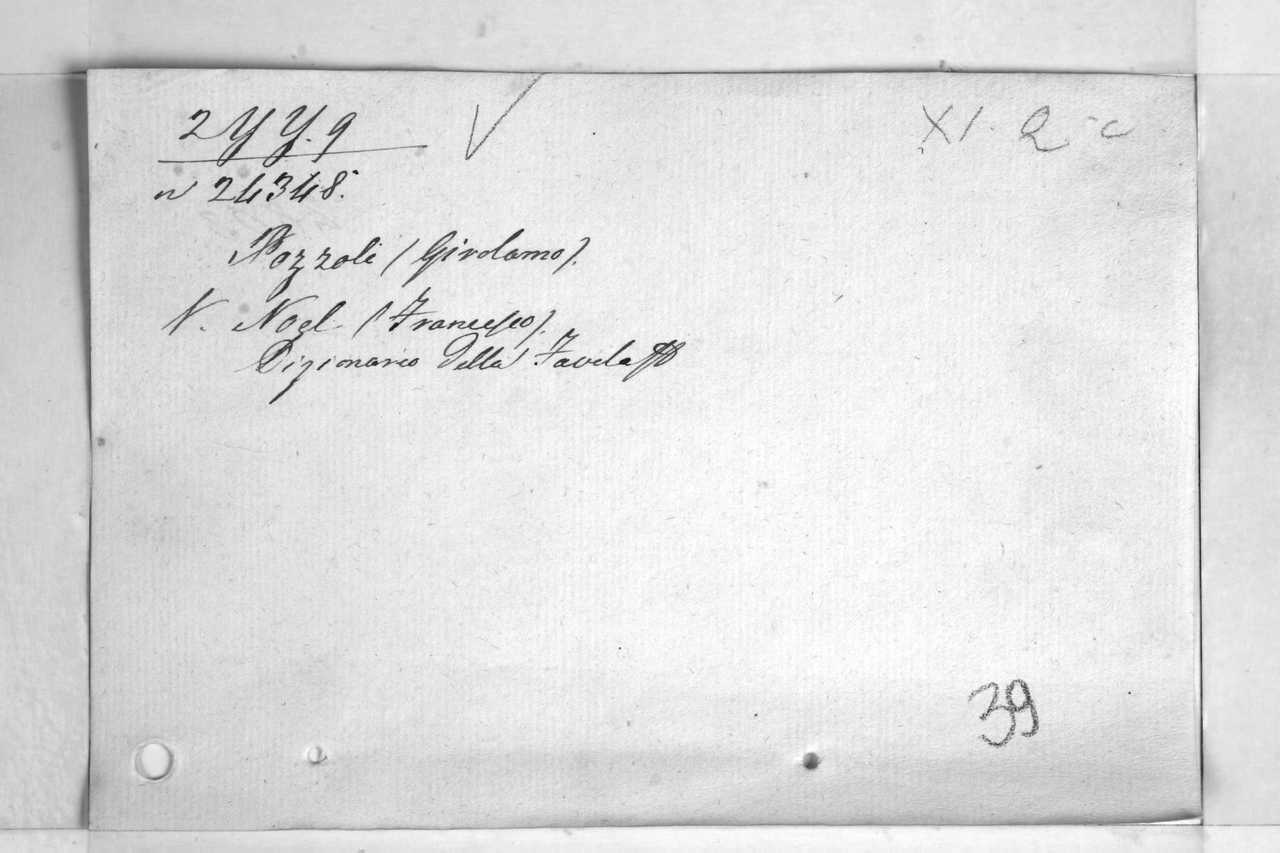 2 Y Y. 9
XI. Q - c
n 24348.
Pozzoli (Girolamo).
V. Noel (Francesco).
Dizionario della Favola
39